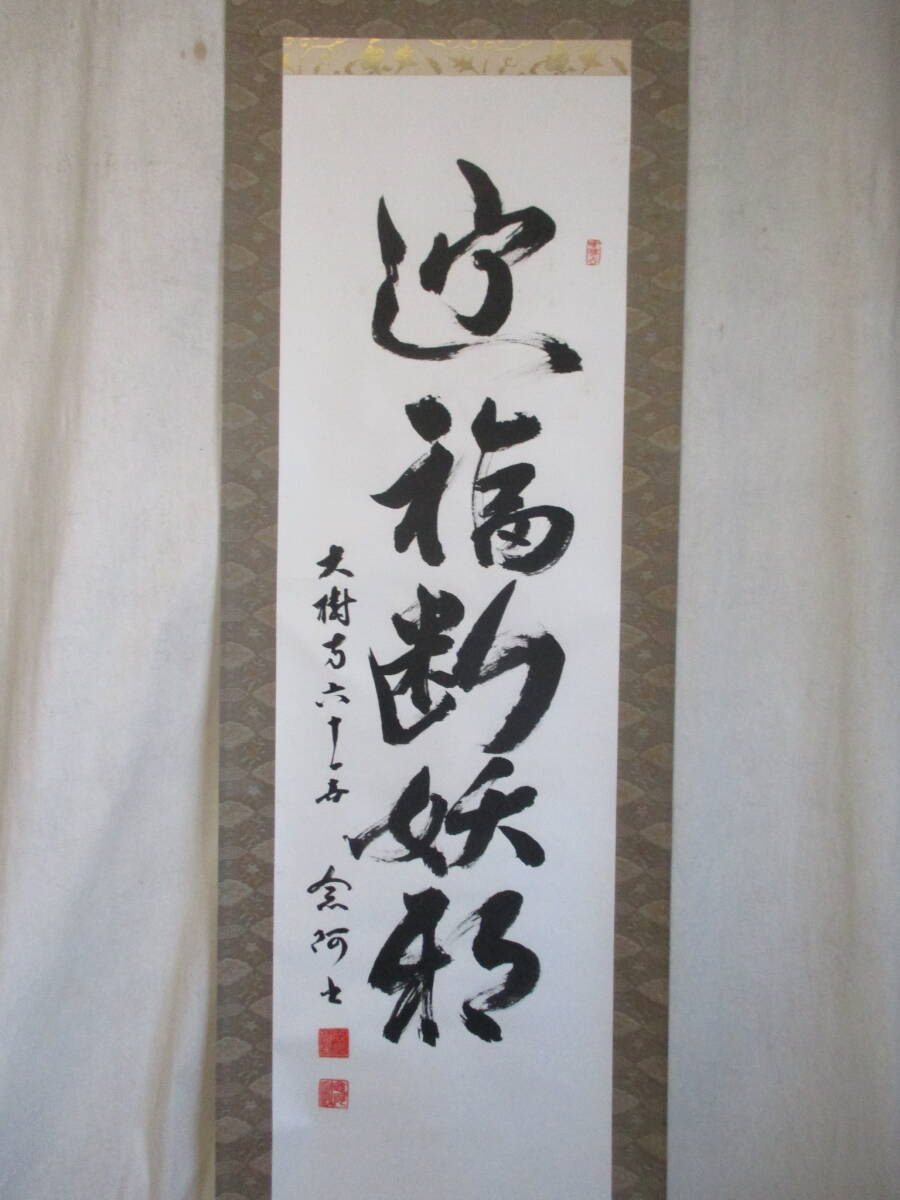 迎福断妖邪
大樹寺六十一世 念阿